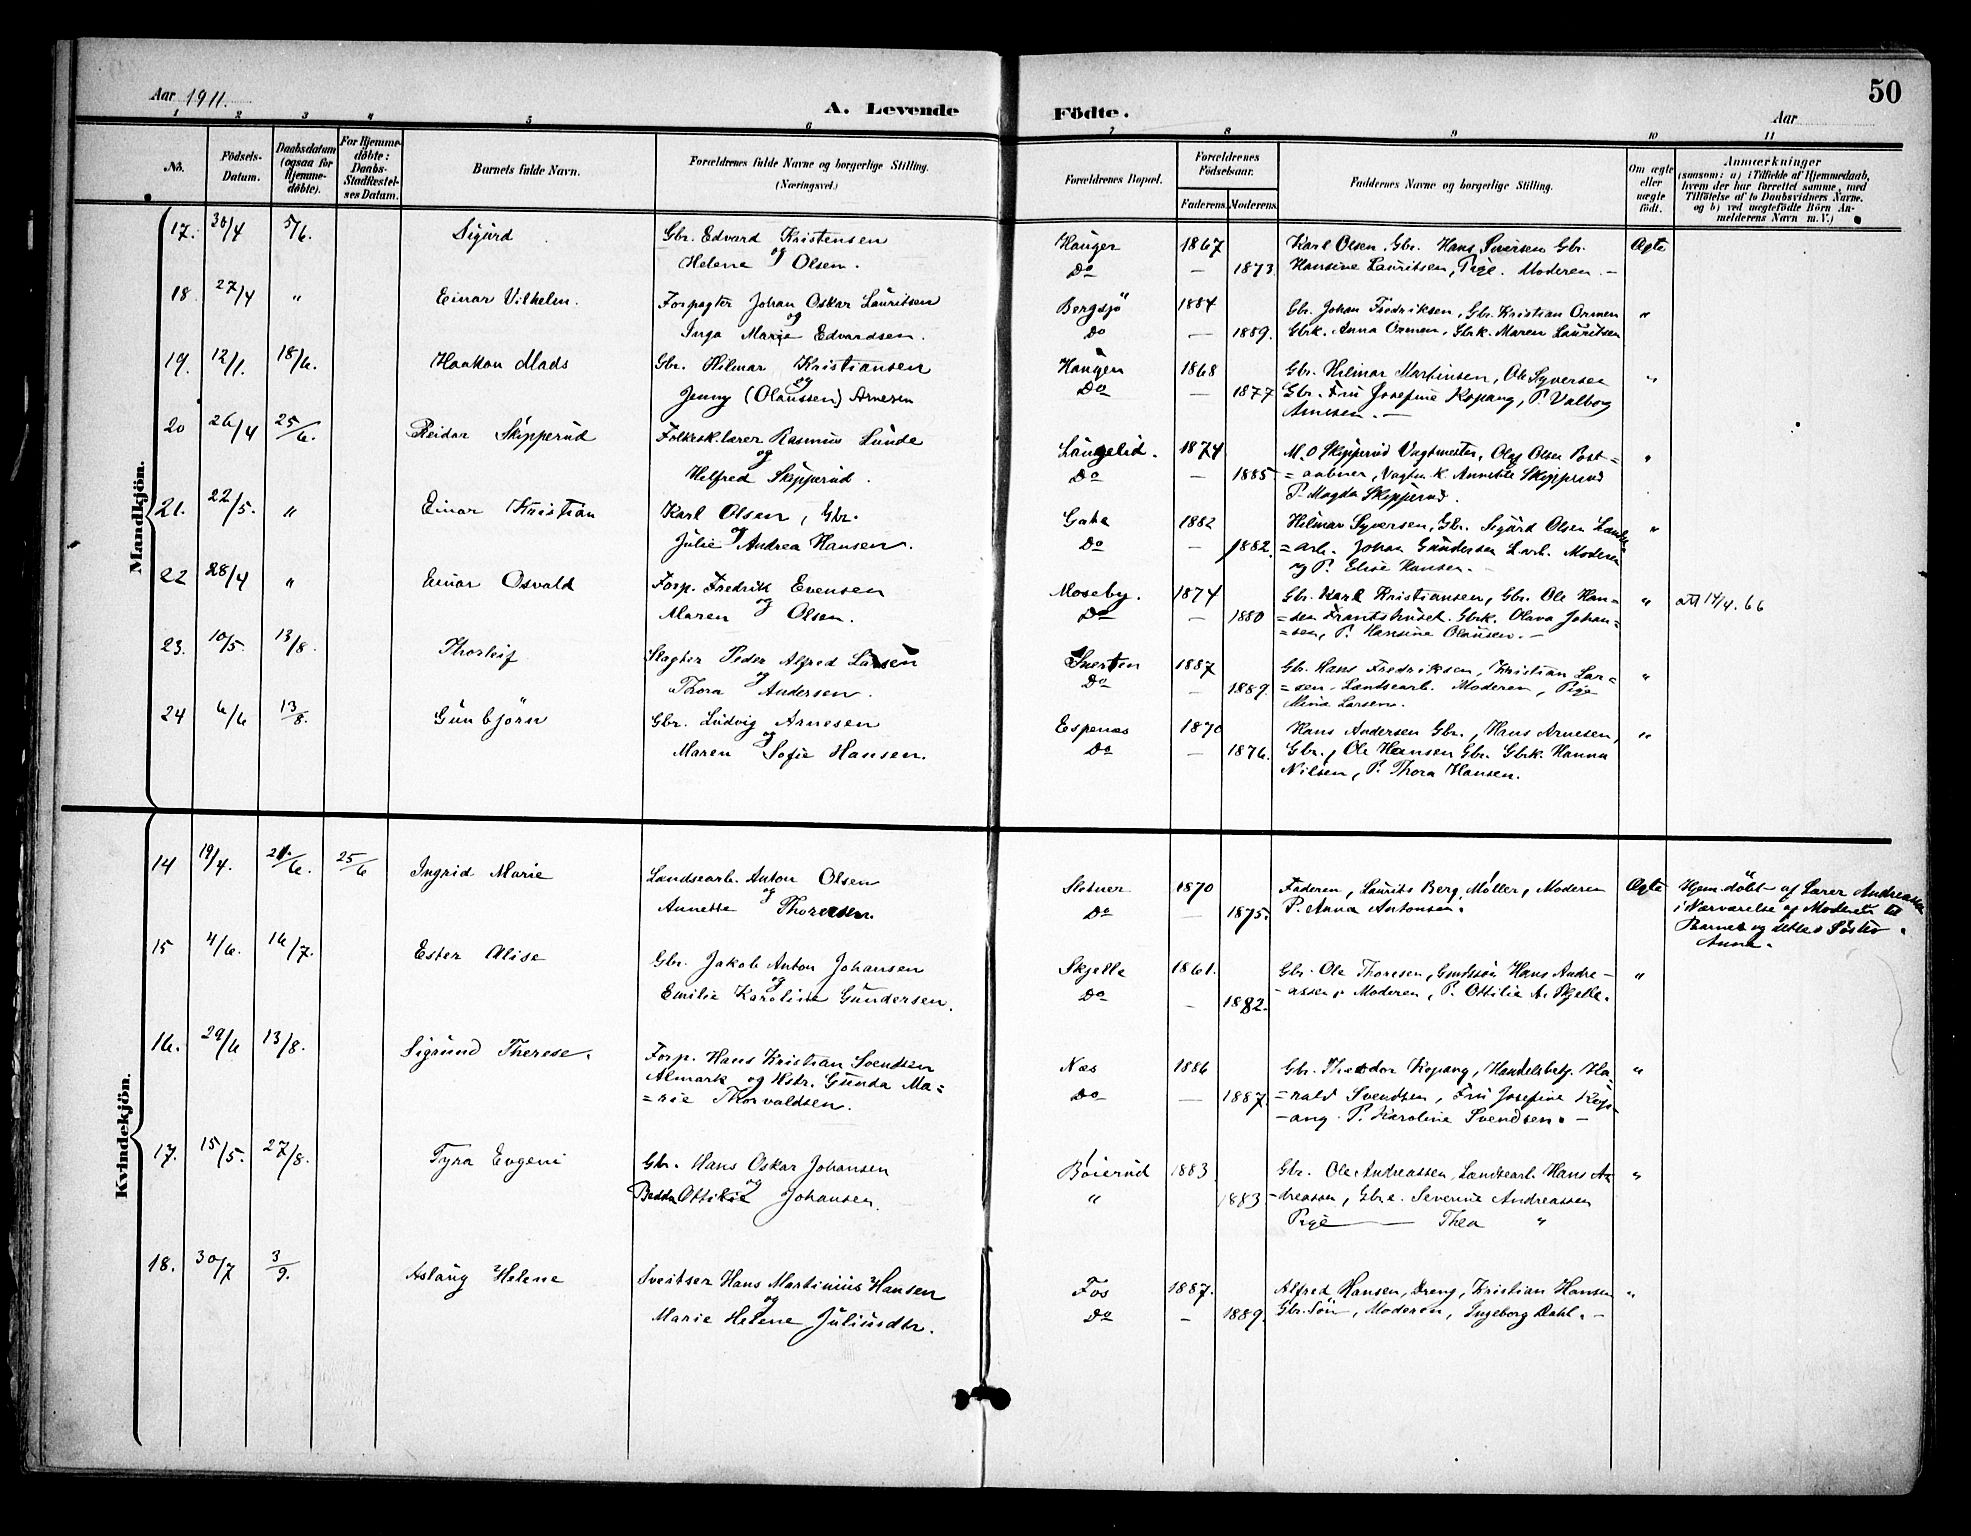 Aar 1911. A. Levende Födte. Aar 50
1 2 3 4 5 6 7 8 9 10 11
No. Födsels-Datum. Daabsdatum (ogsaa for Hjemme-döbte). For Hjemme-döbte: Daabs-Stadfæstel-ses Datum. Barnets fulde Navn. Forældrenes fulde Navne og borgerlige Stilling. (Næringsvei.) Forældrenes Bopæl. Forældrenes Födselsaar. Faderens. Moderens. Faddernes Navne og borgerlige Stilling. Om ægte eller uægte født. Anmærkninger (saasom: a) i Tilfælde af Hjemmedaab, hvem der har forrettet samme, med Tilföielse af to Daabsvidners Navne. og b) ved uægtefödte Börn An-melderens Navn m. V.)
Mandkjön.
17. 30/4 5/6. Sigurd Gbr. Edvard Kristensen Hauger 1867 Karl Olsen, Gbr. Hans Sversen Gbr. Ægte
og Helene Olsen. Do — 1873. Hansine Lauritsen, Pige. Moderen. —
18. 27/4 " Einar Vilhelm. Forpagter Johan Oskar Lauritsen Bergsjö 1884 Gbr. Johan Fredriksen, Gbr. Kristian Ormen "
og Inga Marie Edvardsen. Do — 1889. Gbrk. Anna Ormen, Gbrk. Maren Lauritsen
19. 12/1. 18/6. Haakon Mads Gbr. Hilmar Kristiansen Haugen 1868 Gbr. Hilmar Martinsen, Ole Syversen "
og Jenny (Olaussen) Arnesen Do — 1877 Gbr. Fru Josefine Kopang, P. Valborg
Arnesen. —
20 26/4 25/6. Reidar Skipperud Folkesk.lærer Rasmus Lunde Langelid. 1874. M. O Skipperud Vagtmester, Oluf Olsen Post= "
og Helfred Skipperud. Do — 1885. =aabner, Vagtm. k. Annette Skipperud
P. Magda Skipperud.
21. 22/5. " Einar Kristian Karl Olsen, Gbr. Gata 1882 Hilmar Syversen, Gbr. Sigurd Olsen Lands= "
og Julie Andrea Hansen. Do — 1882. =arb. Johan Gundersen L.arb. Moderen
og P. Elise Hansen. —
22 28/4 " Einar Osvald Forp. Fredrik Evensen Moseby. 1874 Gbr. Karl Kristiansen, Gbr. Ole Han= " att 14/4. 66
og Maren Olsen. Do — 1880 =sen Frantshuset. Gbrk. Olava Johan=
=sen, P. Hansine Olausen. —
23. 10/5 13/8. Thorleif Slagter Peder Alfred Larsen Snerten 1887 Gbr. Hans Fredriksen, Kristian Lar= "
og Thora Andersen. Do — 1889. =sen. Landsearb. Moderen, Pige
Mina Larsen.
24 6/6 13/8. Gunbjörn Gbr. Ludvig Arnesen Espenæs 1870 Hans Andersen Gbr., Hans Arnesen, "
og Maren Sofie Hansen. Do — 1876. Gbr., Ole Hansen Gbr. Gbrk. Hanna
Nilsen, P. Thora Hansen.
Kvindekjön.
14 19/4. 21/6. 25/6 Ingrid Marie Landsearb. Anton Olsen Slotner 1870 Faderen, Laurits Berg, Møller, Moderen Ægte Hjem.döbt af Lærer Andreassen
og Annette Thoresen. Do — 1875. P. Anna Antonsen. i Nærværelse af Moderen til
Barnet og dettes Söster
Anna.
15 4/6. 16/7. Ester Alise Gbr. Jakob Anton Johansen Skjelle 1861. Gbr. Ole Thoresen, Gmdssön Hans Andre= "
og Emilie Karoline Gundersen. Do — 1882. =assen, Moderen, P. Ottilie A. Skjelle.
16. 29/6 13/8. Sigrund Therese. Forp. Hans Kristian Svendsen Næs 1886 Gbr. Theodor Kopang, Handelsbetj. Ha= "
Almark og Hstr. Gunda Ma= Do — 1887. =rald Svendsen, Fru Josefine Kop=
=rie Thorvaldsen. =ang. P. Karoline Svendsen. —
17. 15/5. 27/8. Tyra Evgeni Gbr. Hans Oskar Johansen Böierud 1883 Gbr. Ole Andreassen, Landsearb. Hans A= "
og Ottilie Johansen. " 1883 =dreassen, Gbr e. Severine Andreassen
Pige — Thea "
18. 30/7 3/9. Aslaug Helene Sveitser Hans Martinius Hansen Fos 1887. Alfred Hansen, Dreng, Kristian Hansen "
og Marie Helene Juliusdtr. Do — 1889. Gbr. Sön, Moderen, Ingeborg Dahl. —